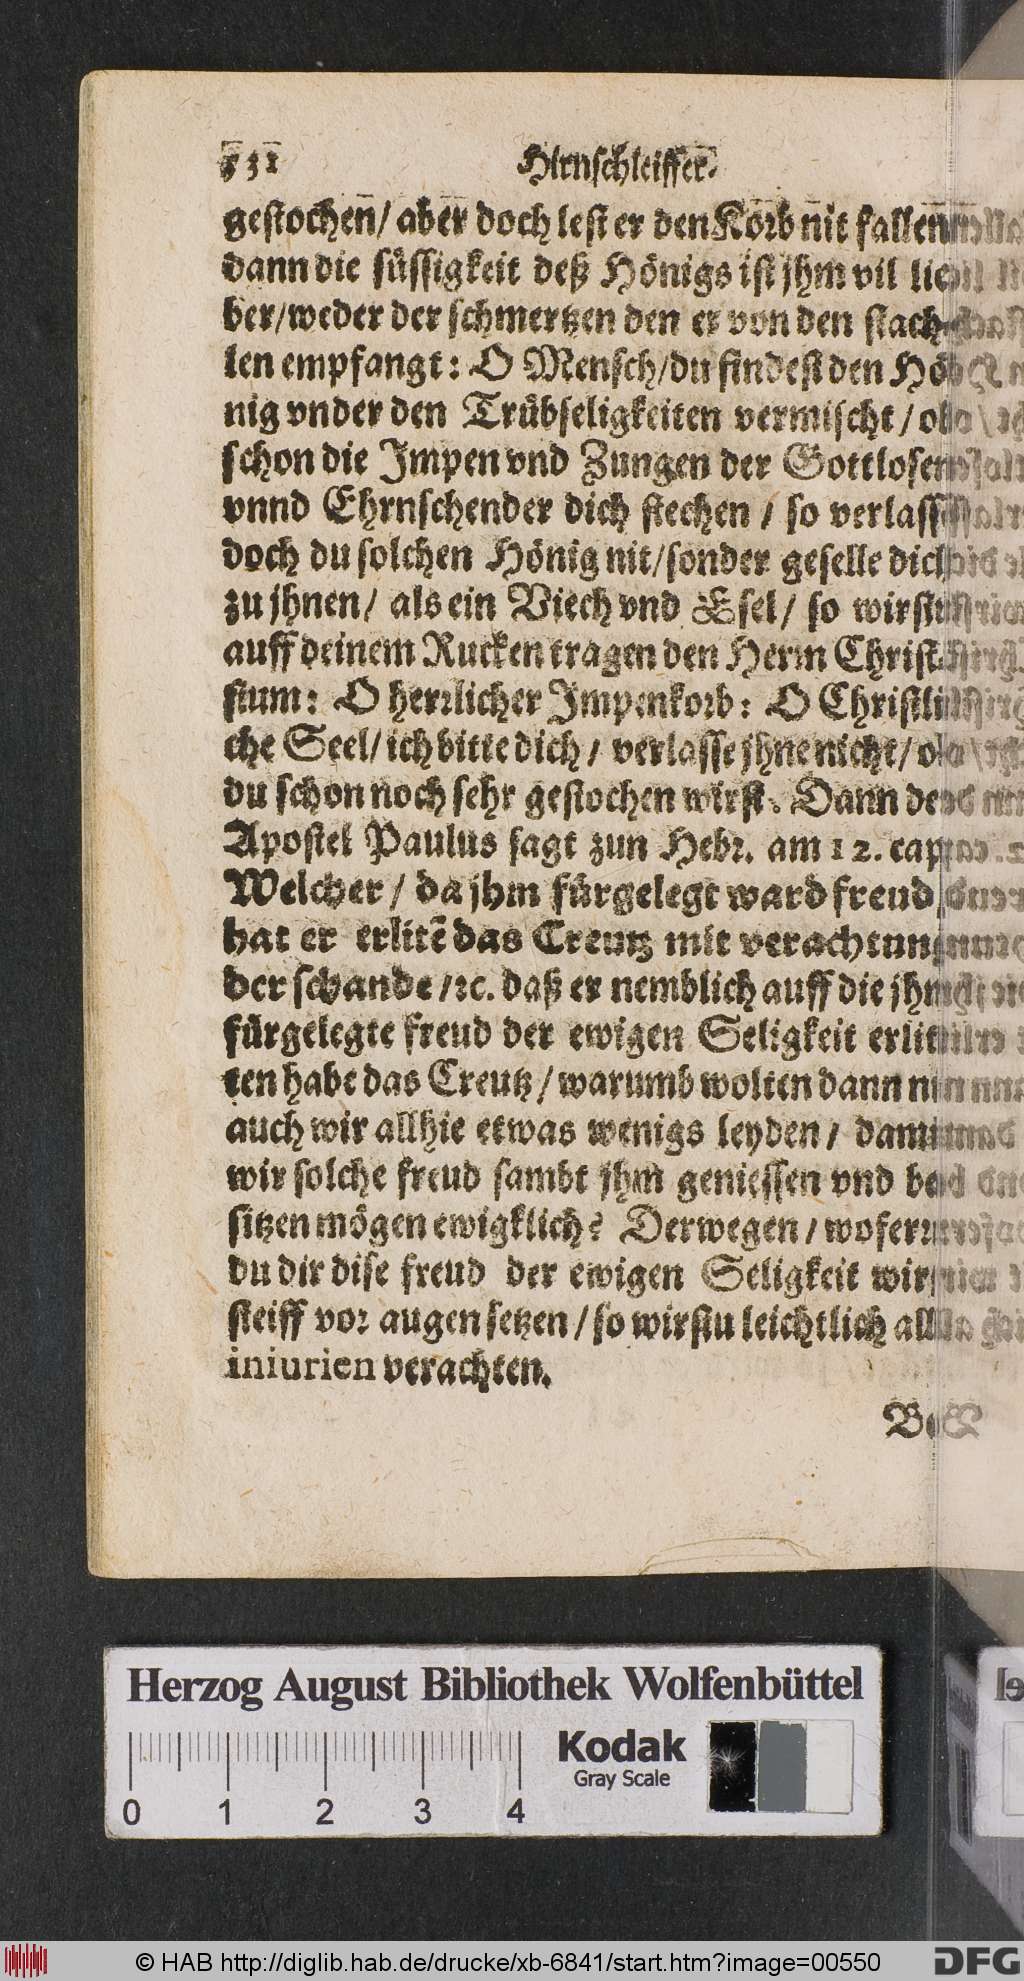 532 Hirnschleiffer.
gestochen/ aber doch lest er den Korb nit fallen
dann die süssigkeit deß Hönigs ist jhm vil lie
ber/weder der schmertzen den er von den stach
len empfangt: O Mensch/du findest den Hö
nig vnder den Trübseligkeiten vermischt/ ob
schon die Impen vnd Zungen der Gottlosen
vnnd Ehrnschender dich stechen / so verlasse
doch du solchen Hönig nit/sonder geselle dich
zu jhnen/ als ein Viech vnd Esel/ so wirstu
auff deinem Rucken tragen den Herrn Chri
stum: O herrlicher Impenkorb: O Christli
che Seel/ ich bitte dich / verlasse jhne nicht/ ob
du schon noch sehr gestochen wirst. Dann der
Apostel Paulus sagt zun Hebr. am 12. cap.
Welcher / da jhm fürgelegt ward freud
hat er erlitē das Creutz mit verachtung
der schande /rc. daß er nemblich auff die jhm
fürgelegte freud der ewigen Seligkeit erlit
ten habe das Creutz / warumb wolten dann nun
auch wir allhie etwas wenigs leyden / damit
wir solche freud sambt jhm geniessen vnd be
sitzen mögen ewigklich? Derwegen / wofern
du dir dise freud der ewigen Seligkeit wirst
steiff vor augen setzen / so wirstu leichtlich all
iniurien verachten.
Herzog August Bibliothek Wolfenbüttel
Kodak
Gray Scale
0 1 2 3 4
© HAB http://diglib.hab.de/drucke/xb-6841/start.htm?image=00550
DFG